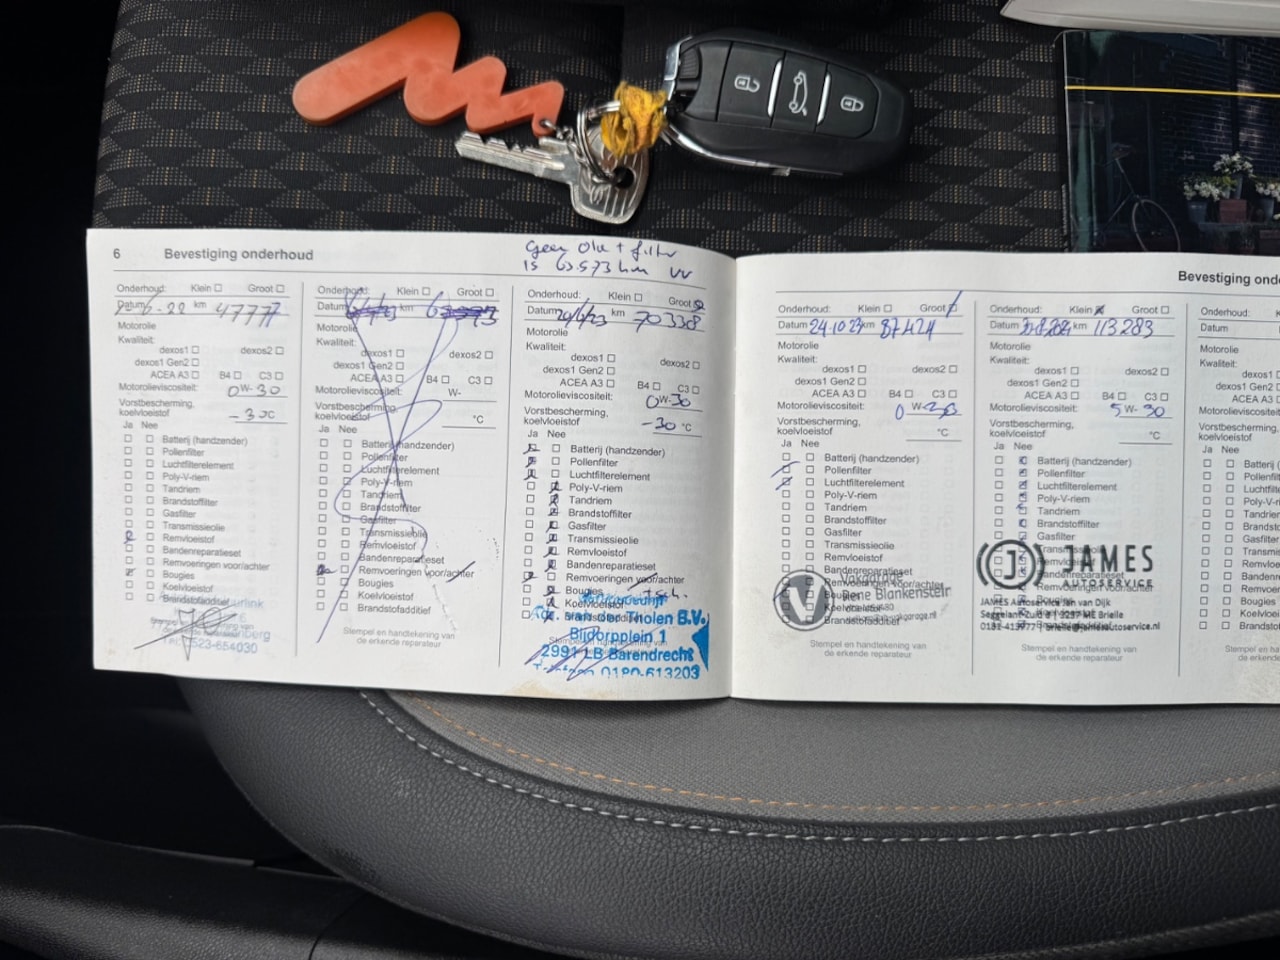 6 Bevestiging onderhoud
Geen Olie + filter
is 63.573 km
Onderhoud: Klein Groot
Datum 6-22 km 47777
Motorolie
Kwaliteit:
dexos1 dexos2
dexos1 Gen2
ACEA A3 B4 C3
Motorolieviscositeit: 0W-30
Vorstbescherming,
koelvloeistof -30 °C
Ja Nee
Batterij (handzender)
Pollenfilter
Luchtfilterelement
Poly-V-riem
Tandriem
Brandstoffilter
Gasfilter
Transmissieolie
Remvloeistof
Bandenreparatieset
Remvoeringen voor/achter
Bougies
Koelvloeistof
Brandstofadditief
523-654030
Onderhoud: Klein Groot
Datum km
Motorolie
Kwaliteit:
dexos1 dexos2
dexos1 Gen2
ACEA A3 B4 C3
Motorolieviscositeit: W-
Vorstbescherming,
koelvloeistof °C
Ja Nee
Batterij (handzender)
Pollenfilter
Luchtfilterelement
Poly-V-riem
Tandriem
Brandstoffilter
Gasfilter
Transmissieolie
Remvloeistof
Bandenreparatieset
Remvoeringen voor/achter
Bougies
Koelvloeistof
Brandstofadditief
Stempel en handtekening van
de erkende reparateur
Onderhoud: Klein Groot
Datum 20/6/23 km 70338
Motorolie
Kwaliteit:
dexos1 dexos2
dexos1 Gen2
ACEA A3 B4 C3
Motorolieviscositeit: 0W-30
Vorstbescherming,
koelvloeistof -30 °C
Ja Nee
Batterij (handzender)
Pollenfilter
Luchtfilterelement
Poly-V-riem
Tandriem
Brandstoffilter
Gasfilter
Transmissieolie
Remvloeistof
Bandenreparatieset
Remvoeringen voor/achter
Bougies
Koelvloeistof
Brandstofadditief
van der Tholen B.V.
Bijdorpplein 1
2991 LB Barendrecht
0180-613203
Bevestiging ond
Onderhoud: Klein Groot
Datum 24.10 23 km 87424
Motorolie
Kwaliteit:
dexos1 dexos2
dexos1 Gen2
ACEA A3 B4 C3
Motorolieviscositeit: 0 W-30
Vorstbescherming,
koelvloeistof °C
Ja Nee
Batterij (handzender)
Pollenfilter
Luchtfilterelement
Poly-V-riem
Tandriem
Brandstoffilter
Gasfilter
Transmissieolie
Remvloeistof
Bandenreparatieset
Remvoeringen voor/achter
Bougies
Koelvloeistof
Brandstofadditief
Vakgarage
Rene Blankenstein
Stempel en handtekening van
de erkende reparateur
Onderhoud: Klein Groot
Datum km 113283
Motorolie
Kwaliteit:
dexos1 dexos2
dexos1 Gen2
ACEA A3 B4 C3
Motorolieviscositeit: 5 W- 30
Vorstbescherming,
koelvloeistof °C
Ja Nee
Batterij (handzender)
Pollenfilter
Luchtfilterelement
Poly-V-riem
Tandriem
Brandstoffilter
Gasfilter
J JAMES
AUTOSERVICE
JAMES Autoservice Jan van Dijk
Seggelant-Zuid 8 | 3237 ME Brielle
brielle@jamesautoservice.nl
Stempel en handtekening van
de erkende reparateur
Onderhoud:
Datum
Motorolie
Kwaliteit:
dexos1
dexos1 Gen2
ACEA A3
Motorolieviscositeit:
Vorstbescherming,
koelvloeistof
Ja Nee